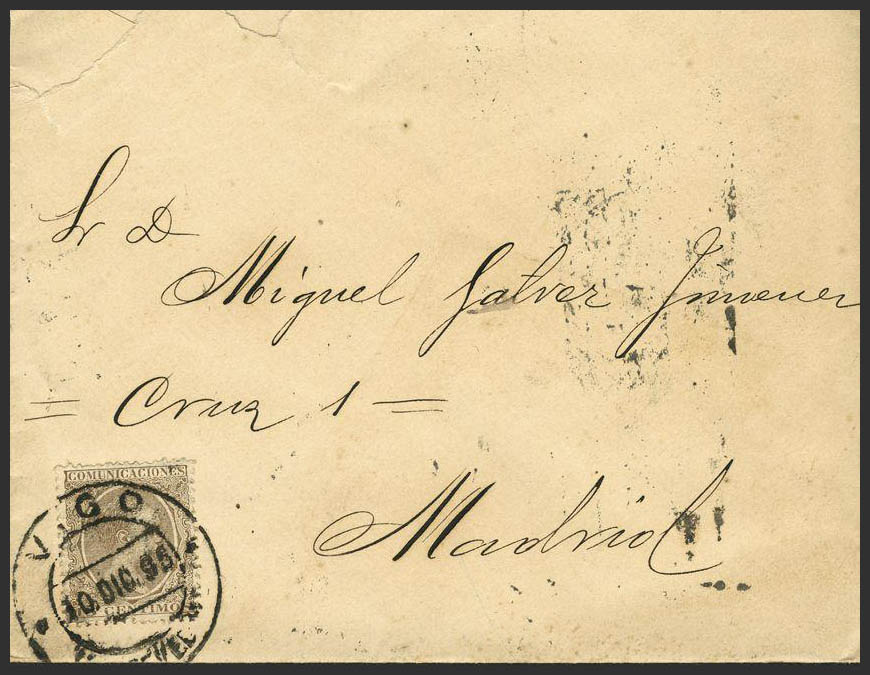 Sr D
Miguel Galvez Jimenez
= Cruz 1 =
Madrid
COMUNICACIONES
VIGO
10.DIC.95
CENTIMO